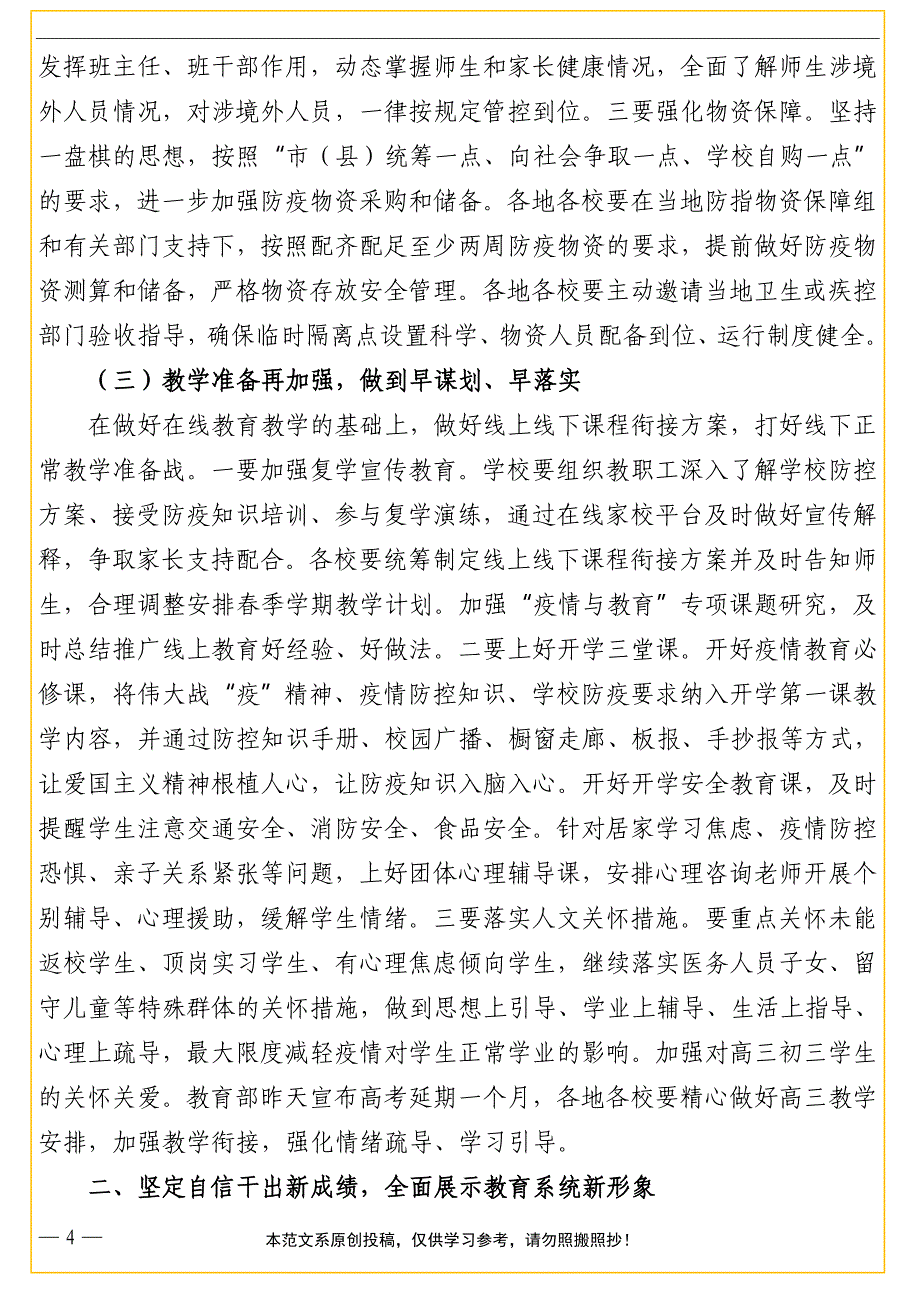 发挥班主任、班干部作用，动态掌握师生和家长健康情况，全面了解师生涉境
外人员情况，对涉境外人员，一律按规定管控到位。三要强化物资保障。坚持
一盘棋的思想，按照“市（县）统筹一点、向社会争取一点、学校自购一点”
的要求，进一步加强防疫物资采购和储备。各地各校要在当地防指物资保障组
和有关部门支持下，按照配齐配足至少两周防疫物资的要求，提前做好防疫物
资测算和储备，严格物资存放安全管理。各地各校要主动邀请当地卫生或疾控
部门验收指导，确保临时隔离点设置科学、物资人员配备到位、运行制度健全。
（三）教学准备再加强，做到早谋划、早落实
在做好在线教育教学的基础上，做好线上线下课程衔接方案，打好线下正
常教学准备战。一要加强复学宣传教育。学校要组织教职工深入了解学校防控
方案、接受防疫知识培训、参与复学演练，通过在线家校平台及时做好宣传解
释，争取家长支持配合。各校要统筹制定线上线下课程衔接方案并及时告知师
生，合理调整安排春季学期教学计划。加强“疫情与教育”专项课题研究，及
时总结推广线上教育好经验、好做法。二要上好开学三堂课。开好疫情教育必
修课，将伟大战“疫”精神、疫情防控知识、学校防疫要求纳入开学第一课教
学内容，并通过防控知识手册、校园广播、橱窗走廊、板报、手抄报等方式，
让爱国主义精神根植人心，让防疫知识入脑入心。开好开学安全教育课，及时
提醒学生注意交通安全、消防安全、食品安全。针对居家学习焦虑、疫情防控
恐惧、亲子关系紧张等问题，上好团体心理辅导课，安排心理咨询老师开展个
别辅导、心理援助，缓解学生情绪。三要落实人文关怀措施。要重点关怀未能
返校学生、顶岗实习学生、有心理焦虑倾向学生，继续落实医务人员子女、留
守儿童等特殊群体的关怀措施，做到思想上引导、学业上辅导、生活上指导、
心理上疏导，最大限度减轻疫情对学生正常学业的影响。加强对高三初三学生
的关怀关爱。教育部昨天宣布高考延期一个月，各地各校要精心做好高三教学
安排，加强教学衔接，强化情绪疏导、学习引导。
二、坚定自信干出新成绩，全面展示教育系统新形象
— 4 —
本范文系原创投稿，仅供学习参考，请勿照搬照抄！